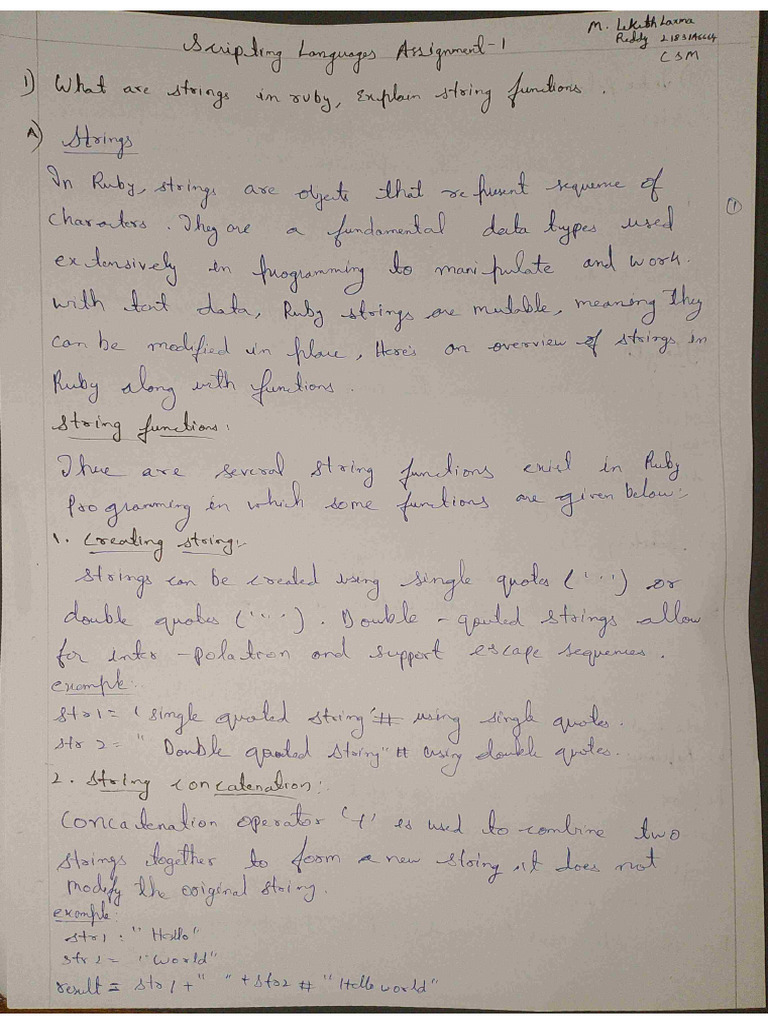 M. Lekith Laxma
Reddy
CSM
Scripting Languages Assignment-1
1) What are strings in ruby, Explain string functions.
A) Strings
In Ruby, strings are objects that represent sequence of
characters. They are a fundamental data types used
extensively in programming to manipulate and work.
with text data, Ruby strings are mutable, meaning they
can be modified in place, Here's an overview of strings in
Ruby along with functions.
①
String functions:
There are several string functions exist in Ruby
Programming in which some functions are given below:-
1. Creating string:-
Strings can be created using single quotes ('..') or
double quotes (".."). Double-qouted strings allow
for inter-polation and support escape sequences.
example:-
str1 = 'single quoted string' # using single quotes.
str 2 = " Double quoted string" # using double quotes.
2. String concatenation:
Concatenation operator '+' is used to combine two
strings together to form a new string, it does not
modify the original string.
example:
str1 : "Hello"
str 2 = "World"
result = str1 + " " + str2 # "Hello world"